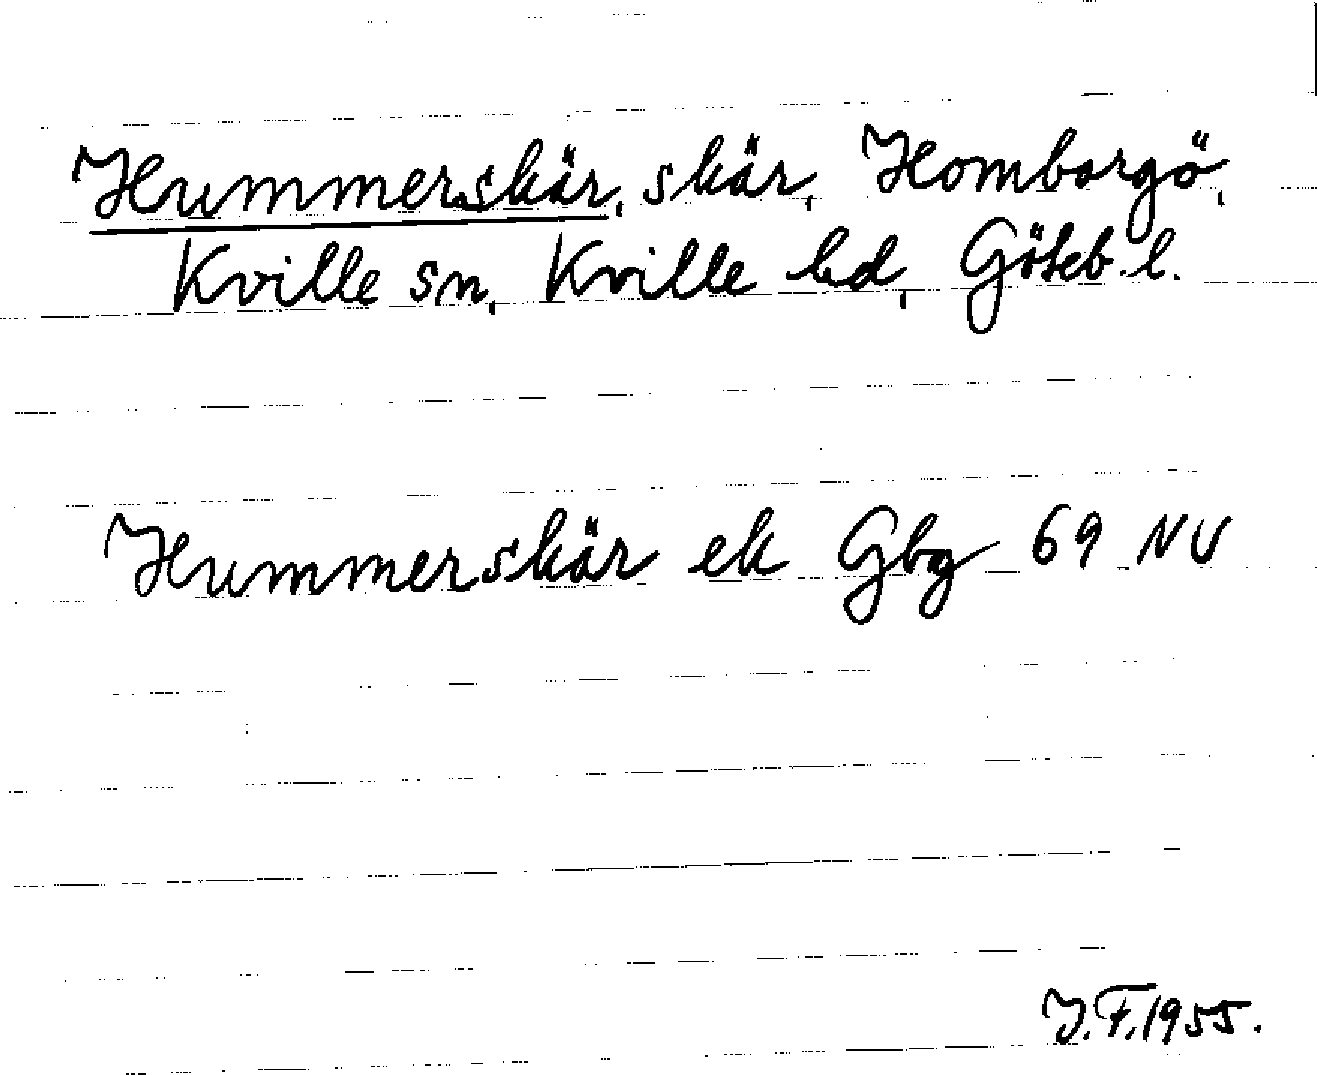 Hummerskär, skär, Homborgö,
Kville sn, Kville hd, Göteb. l.
Hummerskär ek Gbg 69 NV
J.F. 1955.